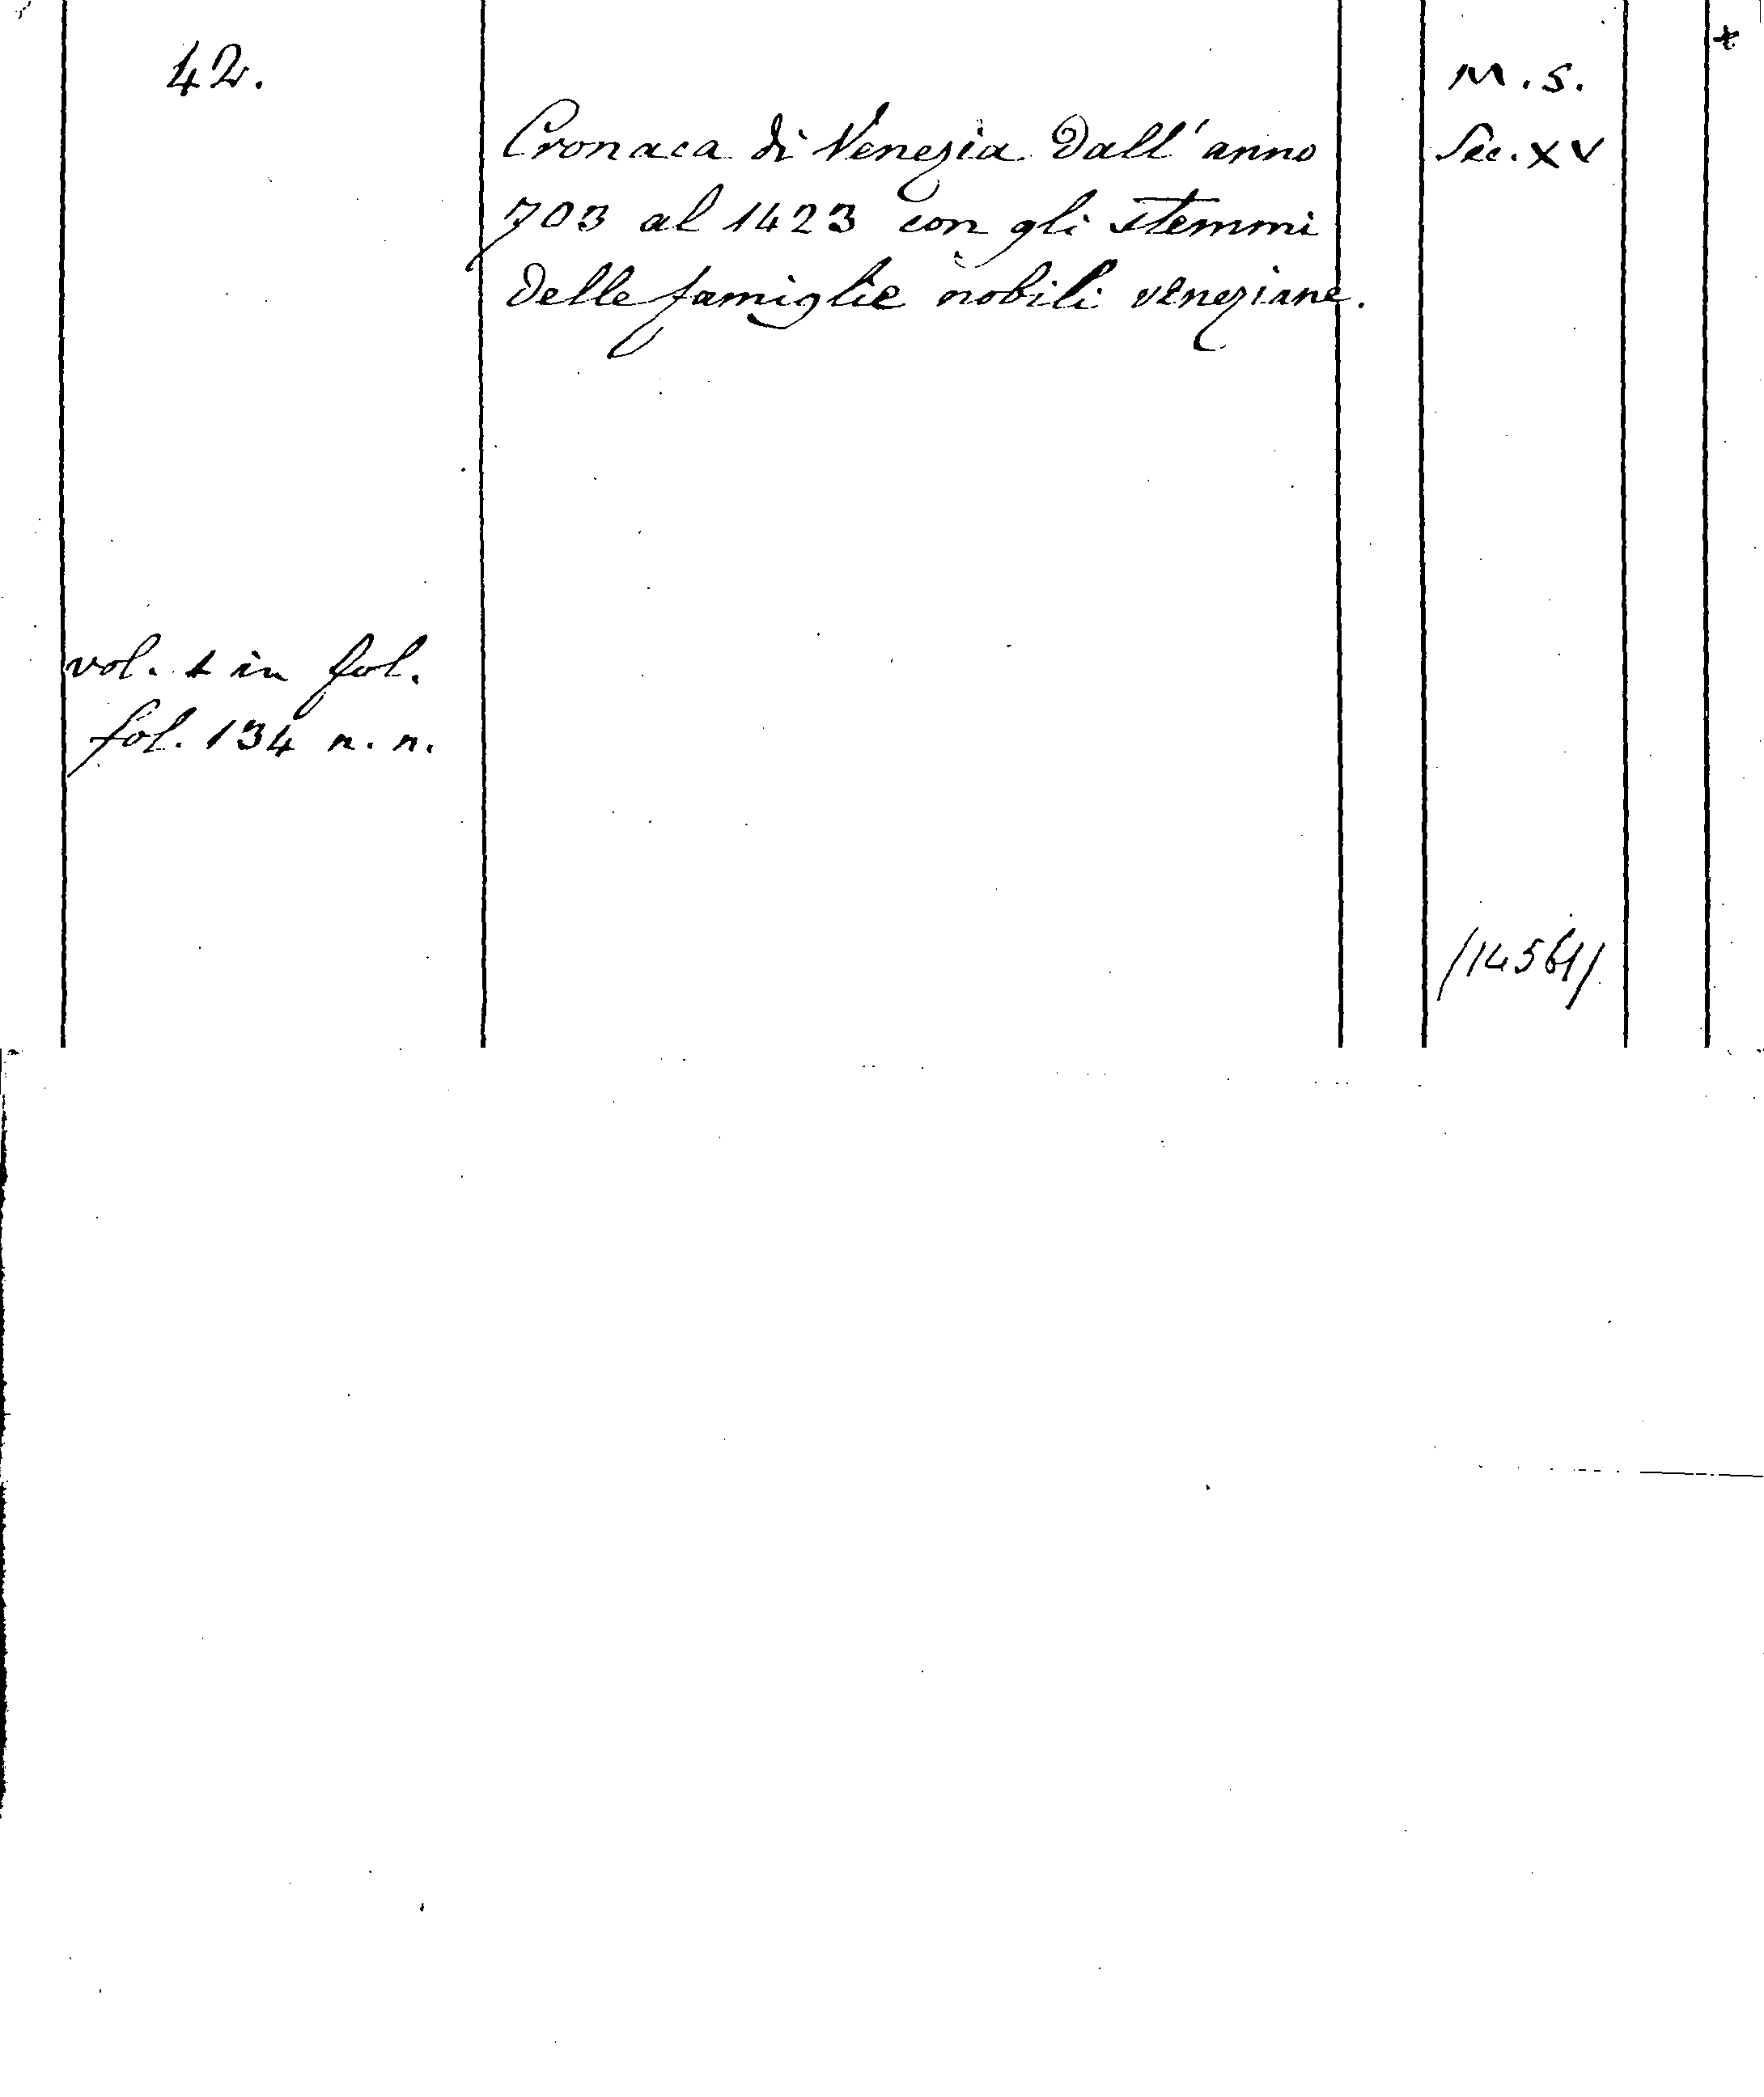 42.
M.S.
Cronaca di Venezia dall'anno
Sec. XV
703 al 1423 con gli stemmi
delle famiglie nobili veneziane.
vol. 1 in fol.
fol. 134 n. n.
/14561/